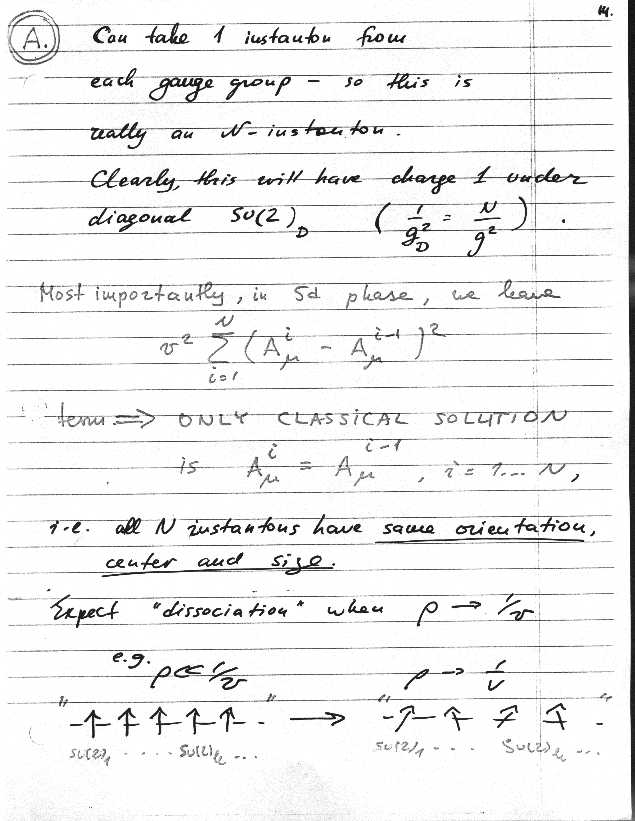 14.
A. Can take 1 instanton from
each gauge group – so this is
really an N-instanton.
Clearly, this will have charge 1 under
diagonal SU(2)_D ( 1/g_D^2 = N/g^2 ) .
Most importantly, in 5d phase, we have
v^2 ∑_{i=1}^{N} ( A_μ^i – A_μ^{i-1} )^2
term ⟹ ONLY CLASSICAL SOLUTION
is A_μ^i = A_μ^{i-1} , i = 1... N,
i.e. all N instantons have same orientation,
center and size.
Expect "dissociation" when ρ → 1/v
e.g. ρ ≪ 1/v ρ → 1/v
" ↑ ↑ ↑ ↑ ↑ . " → " ↑ ↑ ↑ ↑ . "
SU(2)_1 . . . . SU(2)_k ... SU(2)_1 . . . SU(2)_k ...